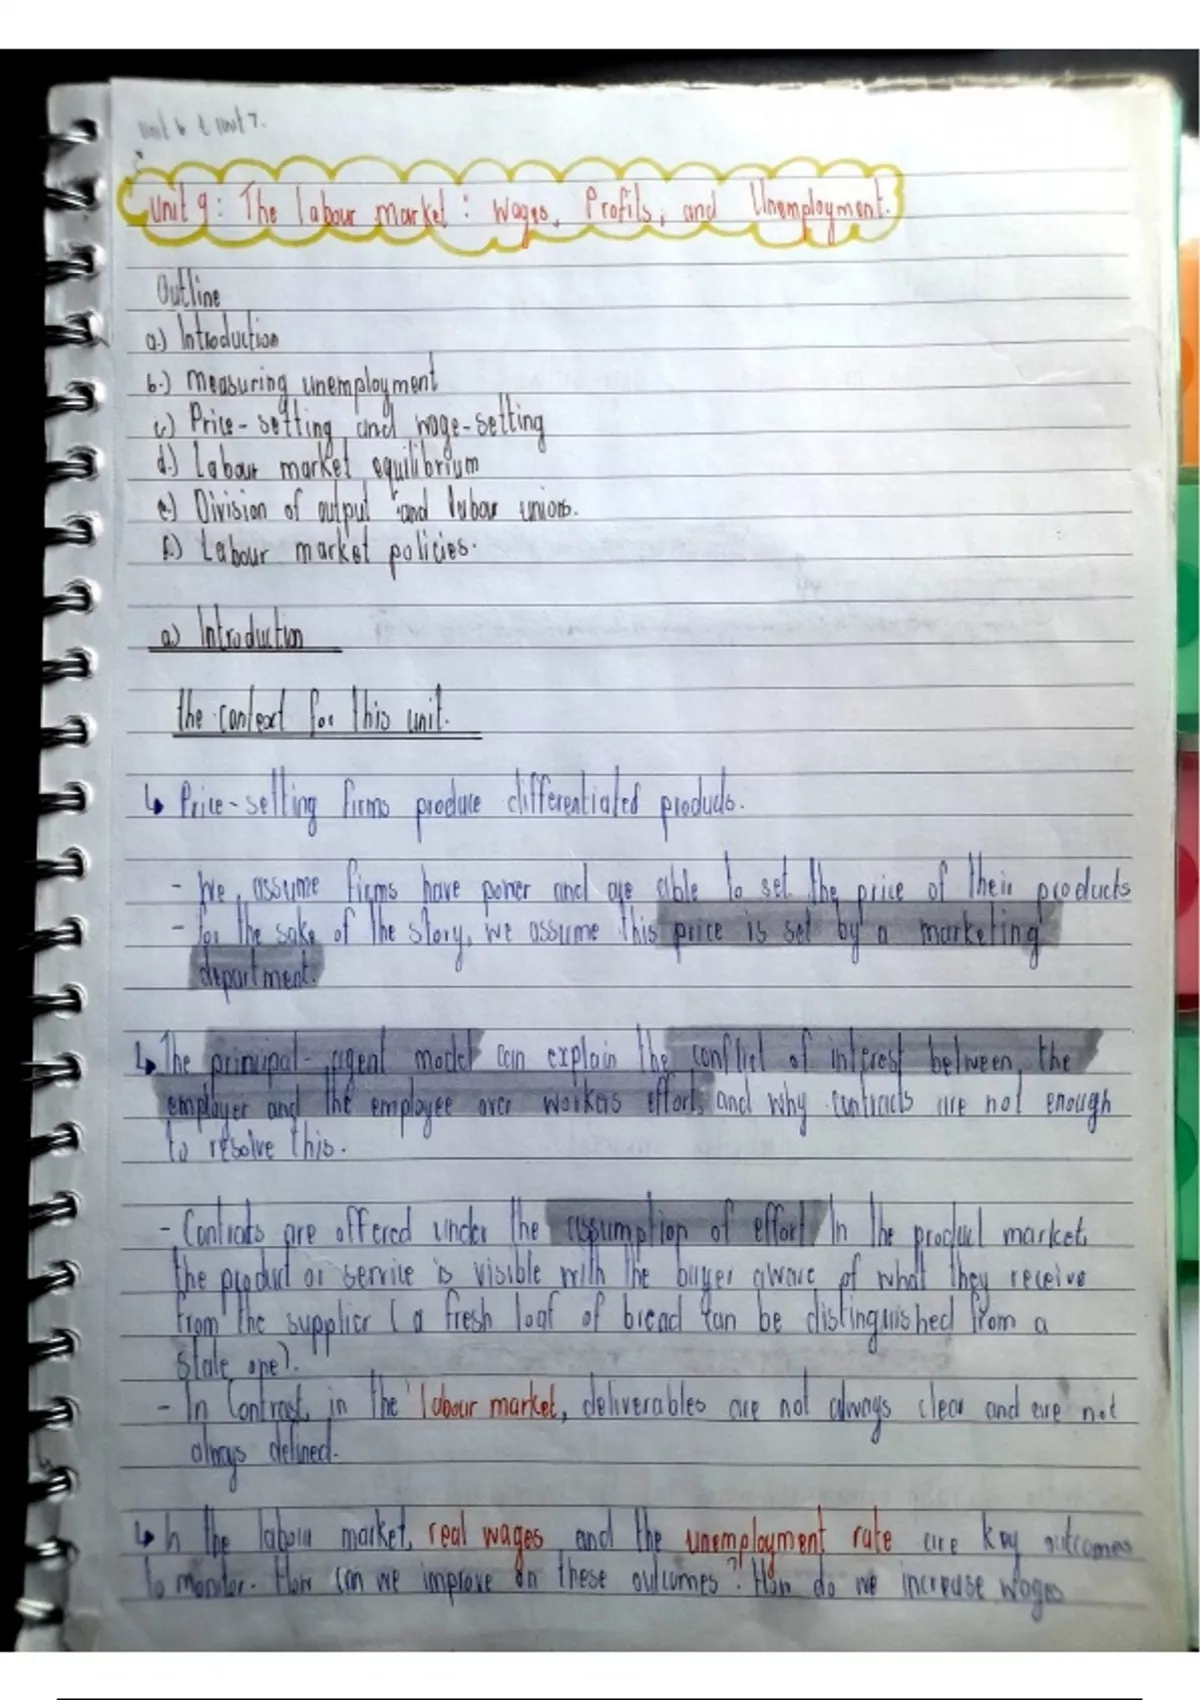 Unit 6 & Unit 7.
Unit 9: The labour market: Wages, Profits, and Unemployment.
Outline
a.) Introduction
b.) Measuring unemployment
c) Price-setting and wage-setting
d.) Labour market equilibrium
e.) Division of output and labour unions.
f.) Labour market policies.
a) Introduction
the context for this unit.
↳ Price-setting firms produce differentiated products.
- We assume firms have power and are able to set the price of their products
- for the sake of the story, we assume this price is set by a marketing
department.
↳ The principal-agent model can explain the conflict of interest between the
employer and the employee over workers effort, and why contracts are not enough
to resolve this.
- Contracts are offered under the assumption of effort. In the product market,
the product or service is visible with the buyer aware of what they receive
from the supplier (a fresh loaf of bread can be distinguished from a
stale one).
- In Contrast, in the labour market, deliverables are not always clear and are not
always defined.
↳ In the labour market, real wages and the unemployment rate are key outcomes
to monitor. How can we improve on these outcomes? How do we increase wages